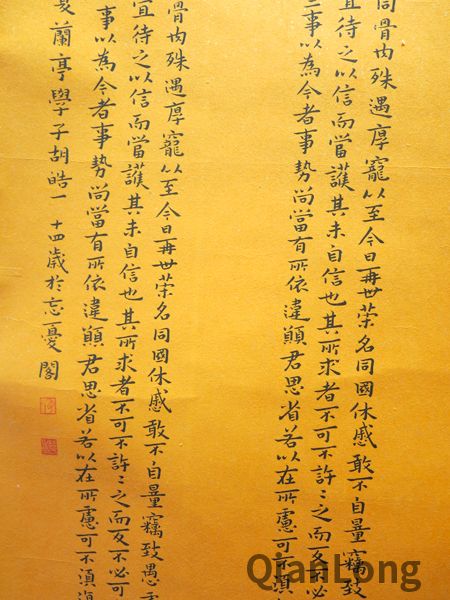 同骨肉殊遇厚寵以至今日再世榮名同國休慼敢不自量竊致
宜待之以信而當護其未自信也其所求者不可不許々之而反不必
事以為今者事勢尚當有所依違願君思省若以在所慮可不湏
骨肉殊遇厚寵以至今日再世榮名同國休慼敢不自量竊致愚
宜待之以信而當護其未自信也其所求者不可不許々之而反不必可
事以為今者事勢尚當有所依違願君思省若以在所慮可不湏
蘭亭學子胡皓一 十四歲於忘憂閣
QianLong